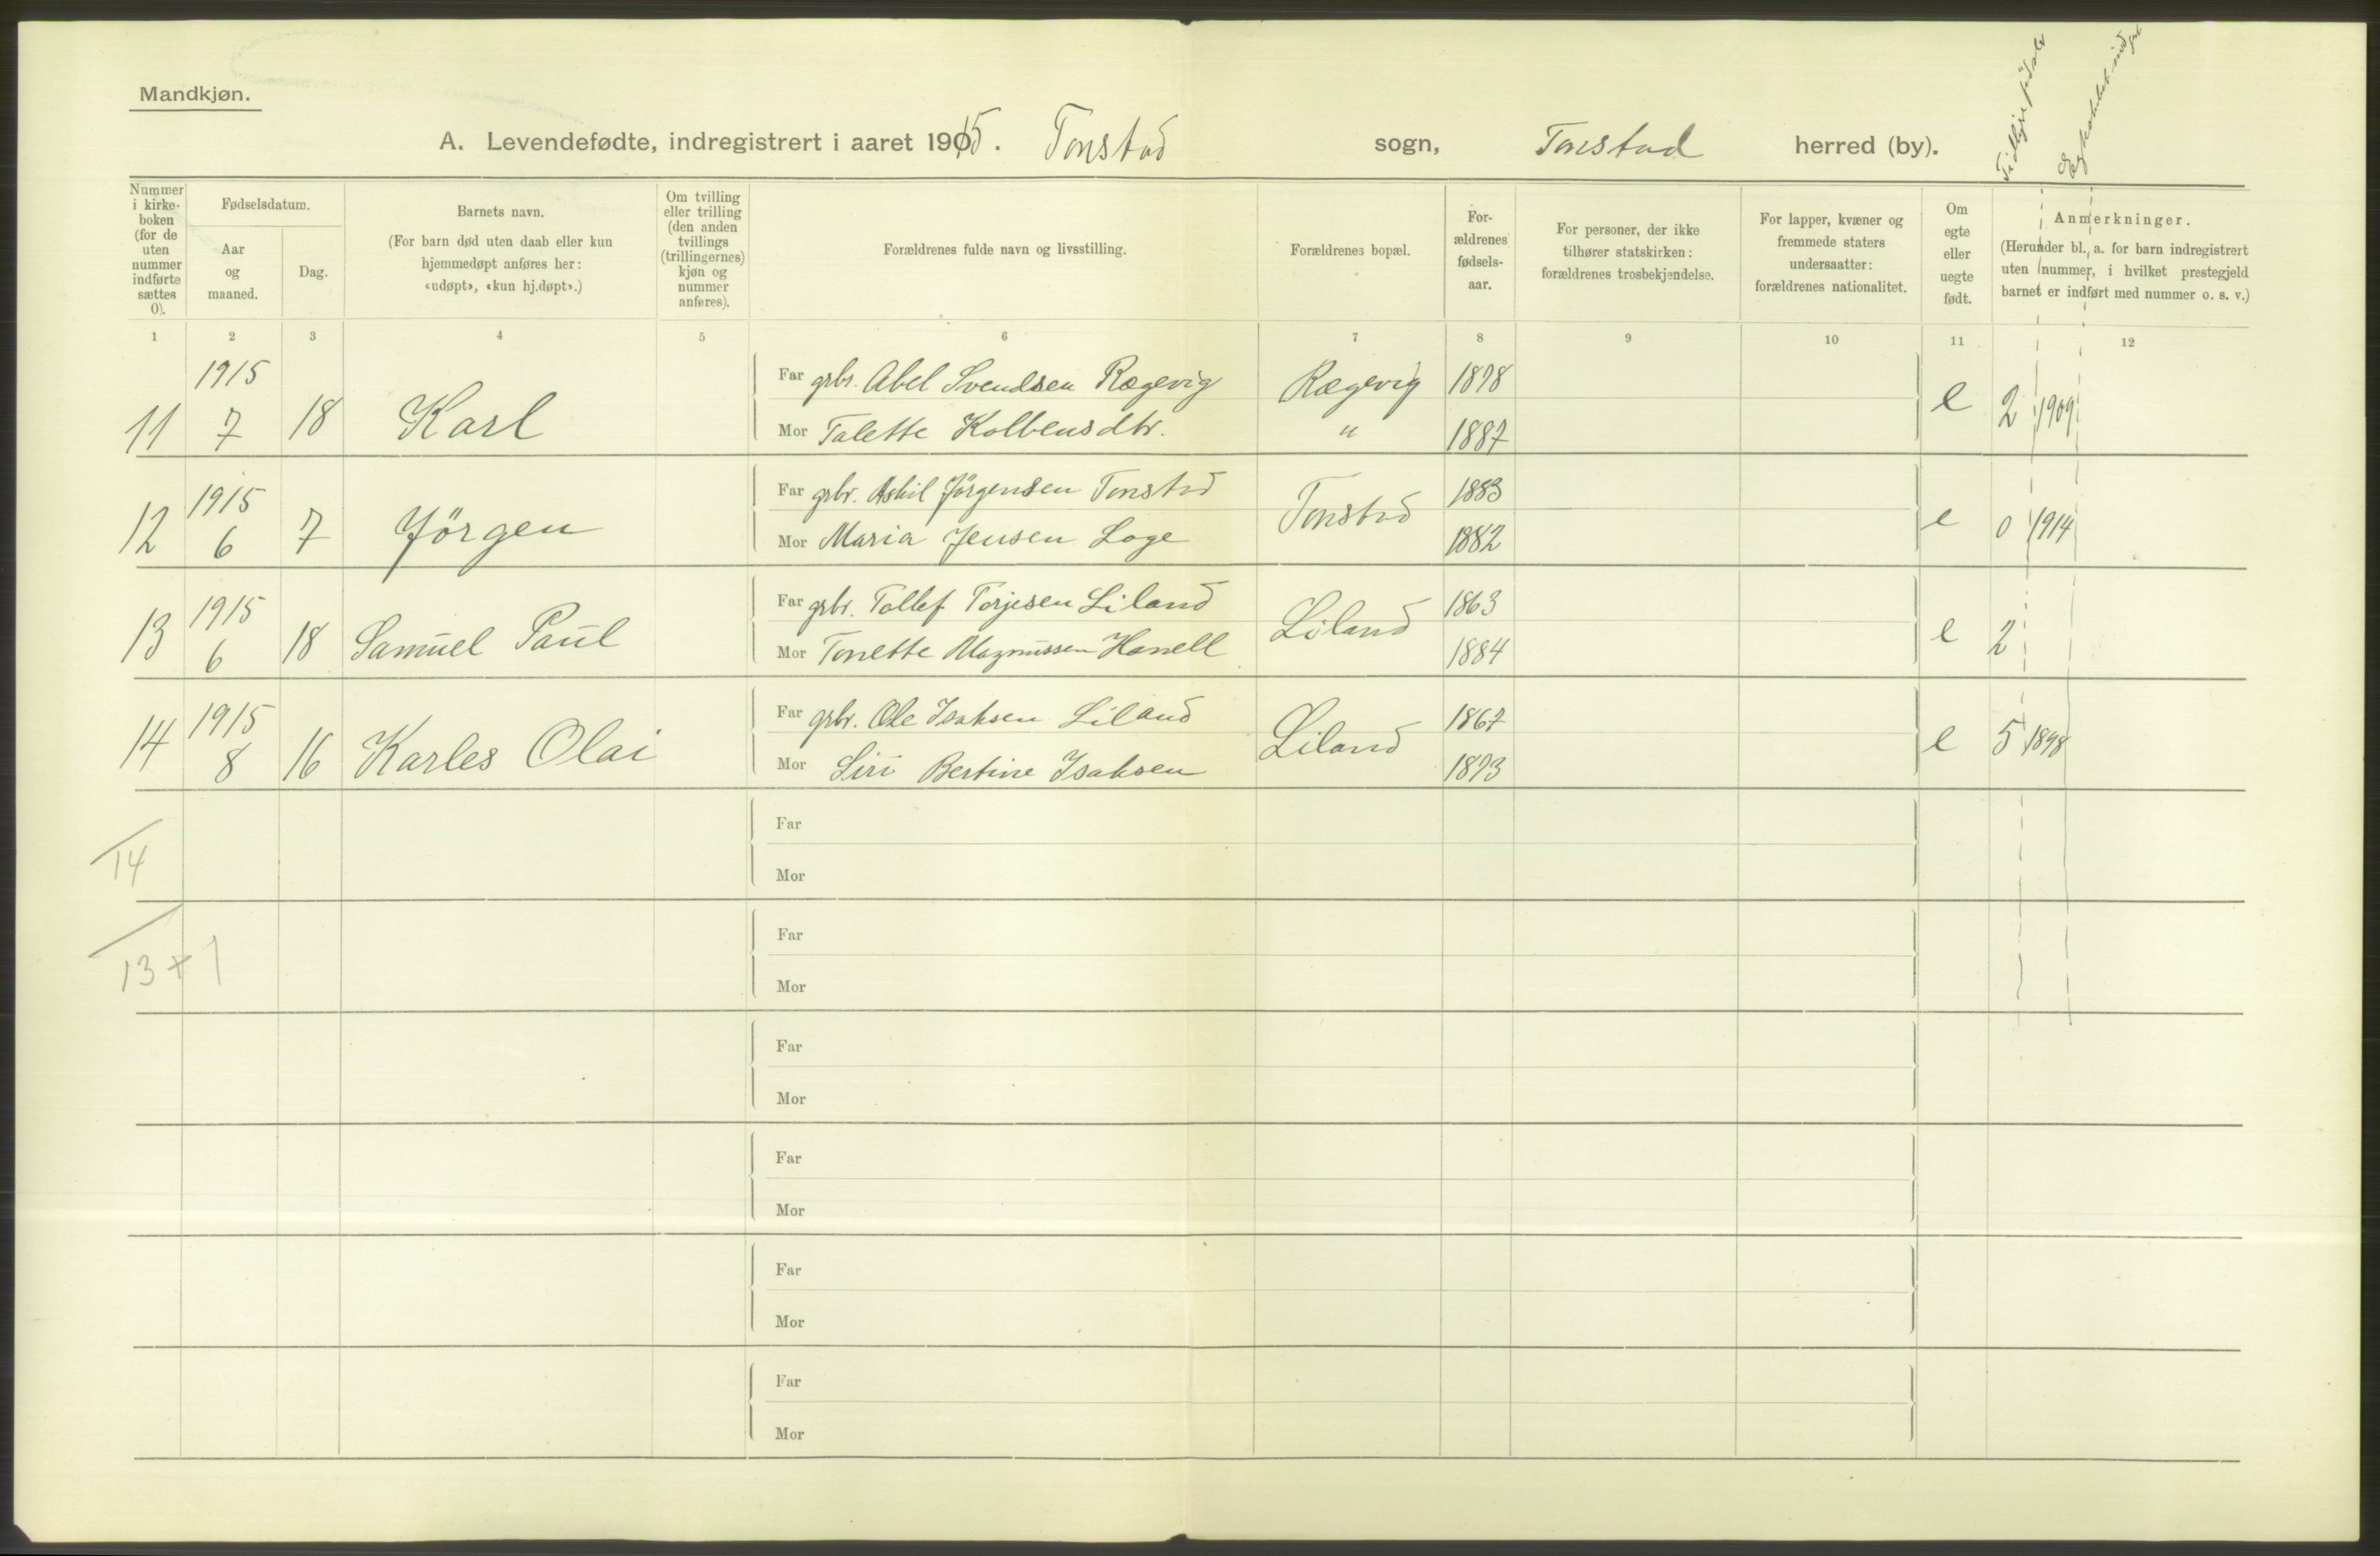 Mandkjøn.
A. Levendefødte, indregistrert i aaret 1915. Tonstad sogn, Tonstad herred (by).
Tidligere fødsler
Nummer i kirkeboken (for de uten nummer indførte sættes 0).
Fødselsdatum.
Aar og maaned.
Dag.
Barnets navn.
(For barn død uten daab eller kun hjemmedøpt anføres her: «udøpt», «kun hj.døpt».)
Om tvilling eller trilling (den anden tvillings (trillingernes) kjøn og nummer anføres).
Forældrenes fulde navn og livsstilling.
Forældrenes bopæl.
For-ældrenes fødsels-aar.
For personer, der ikke tilhører statskirken: forældrenes trosbekjendelse.
For lapper, kvæner og fremmede staters undersaatter: forældrenes nationalitet.
Om egte eller uegte født.
Anmerkninger.
(Herunder bl. a. for barn indregistrert uten nummer, i hvilket prestegjeld barnet er indført med nummer o. s. v.)
1 2 3 4 5 6 7 8 9 10 11 12
1915 Far grbr. Abel Svendsen Rægevig Rægevig 1878
11 7 18 Karl Mor Talette Kolbensdtr. " 1887 e 2 1909
1915 Far grbr. Askil Jörgensen Tonstad Tonstad 1883
12 6 7 Jörgen Mor Maria Jensen Loge 1882 e 0 1914
1915 Far grbr. Tollef Torjesen Liland Liland 1863
13 6 18 Samuel Paul Mor Tonette Magnussen Hanell 1884 e 2
1915 Far grbr. Ole Isaksen Liland Liland 1867
14 8 16 Karles Olai Mor Siri Bertine Isaksen 1873 e 5 1898
Far
14
Mor
Far
13 + 1
Mor
Far
Mor
Far
Mor
Far
Mor
Far
Mor